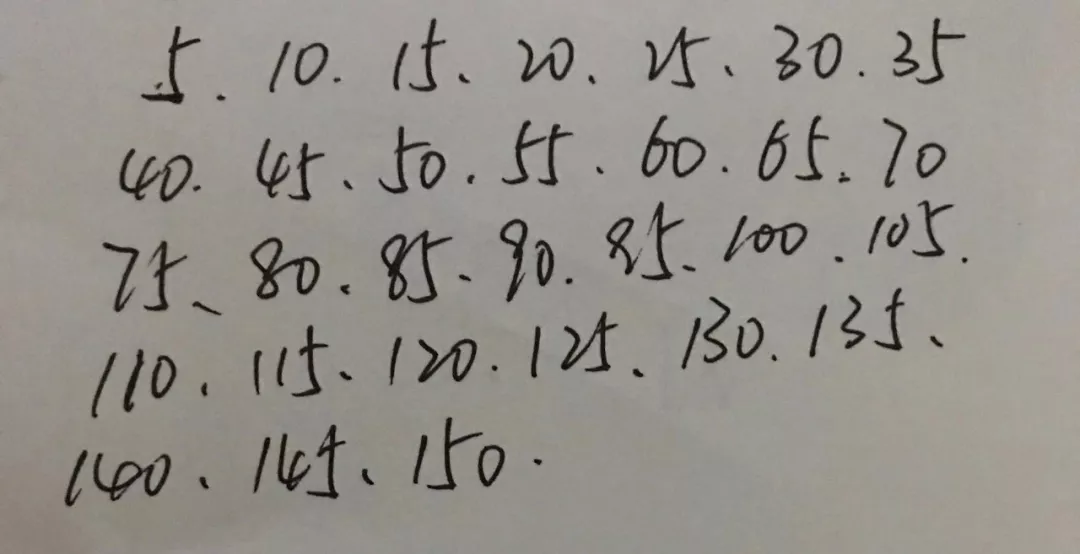 5. 10. 15、20. 25、30. 35
40. 45、50. 55. 60. 65. 70
75、80. 85. 90. 95. 100. 105.
110. 115、120. 125、130. 135、
140、145、150.